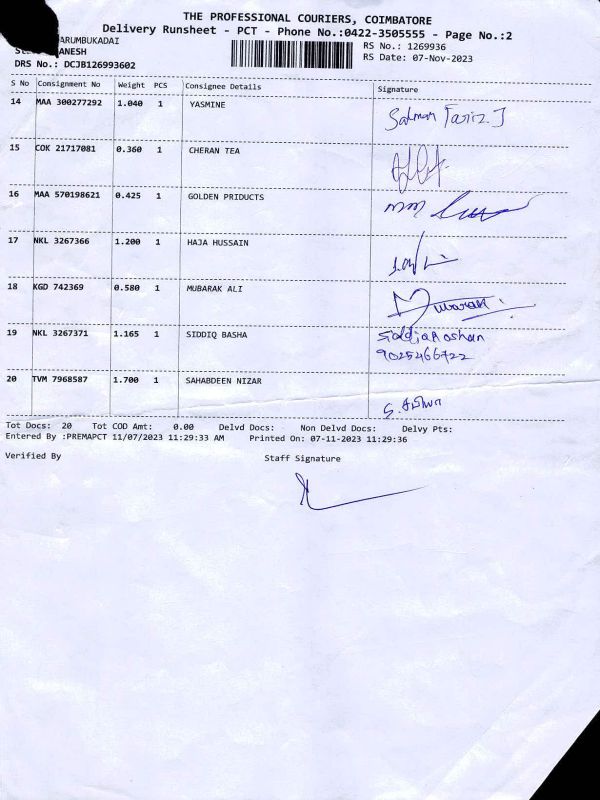 THE PROFESSIONAL COURIERS, COIMBATORE
Delivery Runsheet - PCT - Phone No.:0422-3505555 - Page No.:2
ARUMBUKADAI
ANESH
RS No.: 1269936
RS Date: 07-Nov-2023
DRS No.: DCJB126993602
S No Consignment No Weight PCS Consignee Details Signature
14 MAA 300277292 1.040 1 YASMINE Salman
15 COK 21717081 0.360 1 CHERAN TEA
16 MAA 570198621 0.425 1 GOLDEN PRIDUCTS
17 NKL 3267366 1.200 1 HAJA HUSSAIN
18 KGD 742369 0.580 1 MUBARAK ALI Mubarak
19 NKL 3267371 1.165 1 SIDDIQ BASHA
9025466722
20 TVM 7968587 1.700 1 SAHABDEEN NIZAR
Tot Docs: 20 Tot COD Amt: 0.00 Delvd Docs: Non Delvd Docs: Delvy Pts:
Entered By :PREMAPCT 11/07/2023 11:29:33 AM Printed On: 07-11-2023 11:29:36
Verified By Staff Signature